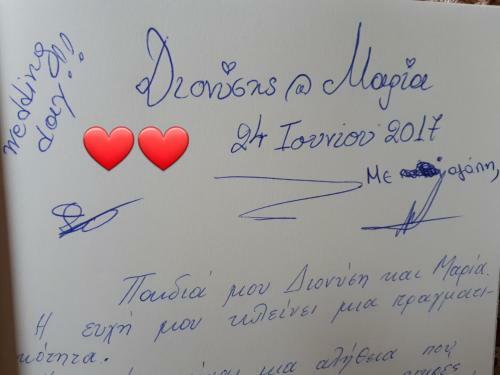 wedding
day!!
Διονύσης & Μαρία
24 Ιουνίου 2017
Με αγάπη,
Παιδιά μου Διονύση και Μαρία.
Η ευχή μου κλείνει μια πραγματι-
κότητα.
μια αλήθεια που